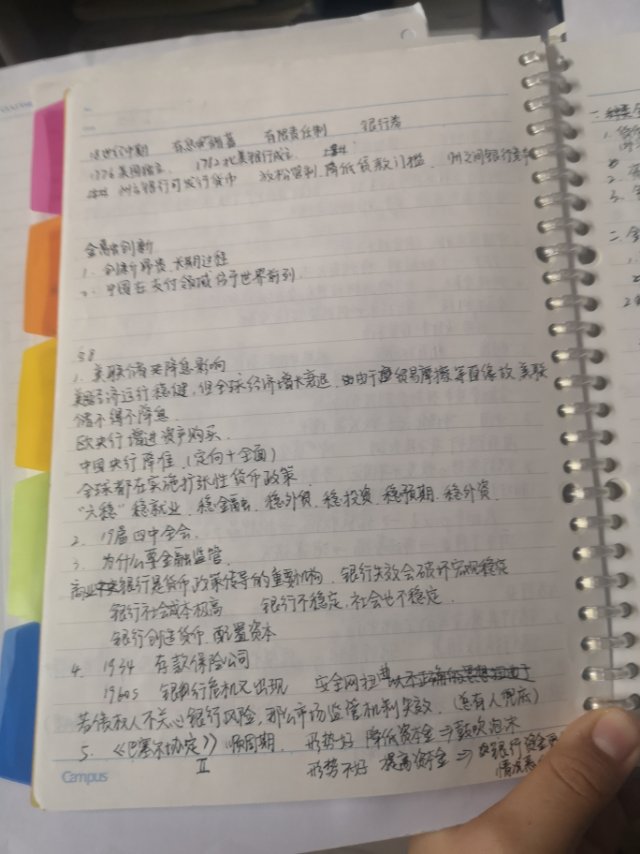 18世纪中期 有限责任制 银行券
1776美国独立, 1782北美银行成立,
州立银行可发行货币 放松管制, 降低贷款门槛, 州之间银行竞争
金融创新
1. 创新昂贵, 长期过程
2. 中国在支付领域位于世界前列.
1. 美联储要降息影响
美经济运行稳健, 但全球经济增长衰退, 由于贸易摩擦等直接故美联
储不得不降息
欧央行增进资产购买.
中国央行降准. (定向+全面)
全球都在实施扩张性货币政策.
“六稳” 稳就业, 稳金融, 稳外贸, 稳投资, 稳预期, 稳外资.
2. 19届四中全会.
3. 为什么要金融监管.
商业银行是货币政策传导的重要机构, 银行失效会破坏宏观稳定
银行社会成本极高 银行不稳定, 社会也不稳定.
银行创造货币, 配置资本
4. 1934 存款保险公司
1960s 银行危机又出现 安全网
若债权人不关心银行风险, 那么市场监管机制失效. (总有人兜底)
5. 《巴塞尔协定》 II 顺周期. 形势好 降低资本金 ⇒ 鼓吹泡沫
形势不好 提高资金 ⇒ 银行资金
Campus
一、
1.
2.
3.
二、
1.
2.